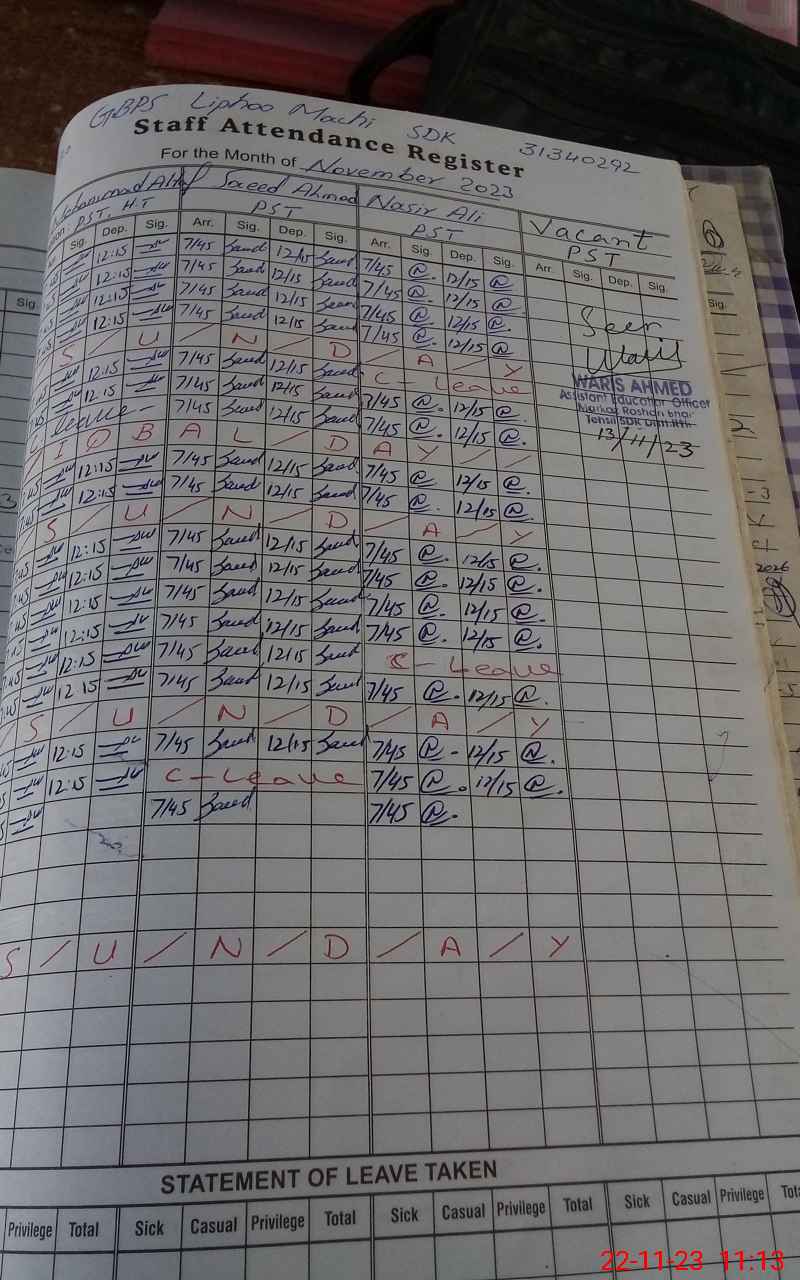 GBPS Liphoo Machi SDK 31340292
Staff Attendance Register
For the Month of November 2023
Mohammad Altaf Saeed Ahmad Nasir Ali Vacant
PST, H.T PST PST PST
Sig. Dep. Sig. Arr. Sig. Dep. Sig. Arr. Sig. Dep. Sig. Arr. Sig. Dep. Sig.
12:15 7/45 Saeed 12/15 Saeed 7/45 @. 12/15 @
12:15 7/45 Saeed 12/15 Saeed 7/45 @. 12/15 @.
12:15 7/45 Saeed 12/15 Saeed 7/45 @. 12/15 @.
12:15 7/45 Saeed 12/15 Saeed 7/45 @. 12/15 @
S / U / N / D / A / Y
12:15 7/45 Saeed 12/15 Saeed C - Leave
12:15 7/45 Saeed 12/15 Saeed 7/45 @. 12/15 @.
Leave 7/45 Saeed 12/15 Saeed 7/45 @. 12/15 @.
I Q B A L / D A Y / /
12:15 7/45 Saeed 12/15 Saeed 7/45 @. 12/15 @.
12:15 7/45 Saeed 12/15 Saeed 7/45 @. 12/15 @.
S / U / N / D / A / Y
12:15 7/45 Saeed 12/15 Saeed 7/45 @. 12/15 @.
12:15 7/45 Saeed 12/15 Saeed 7/45 @. 12/15 @.
12:15 7/45 Saeed 12/15 Saeed 7/45 @. 12/15 @.
12:15 7/45 Saeed 12/15 Saeed 7/45 @. 12/15 @.
12:15 7/45 Saeed 12/15 Saeed C - Leave
12:15 7/45 Saeed 12/15 Saeed 7/45 @. 12/15 @.
/ S / U / N / D / A / Y
12:15 7/45 Saeed 12/15 Saeed 7/45 @ - 12/15 @.
12:15 C - Leave 7/45 @. 12/15 @.
7/45 Saeed 7/45 @.
S / U / N / D / A / Y
Seen
Waris
WARIS AHMED
Assistant Education Officer
Markaz Roshan bhat
Tehsil SDK
13/11/23
STATEMENT OF LEAVE TAKEN
Privilege Total Sick Casual Privilege Total Sick Casual Privilege Total Sick Casual Privilege Total
Sig.
Sig.
2026
22-11-23 11:13